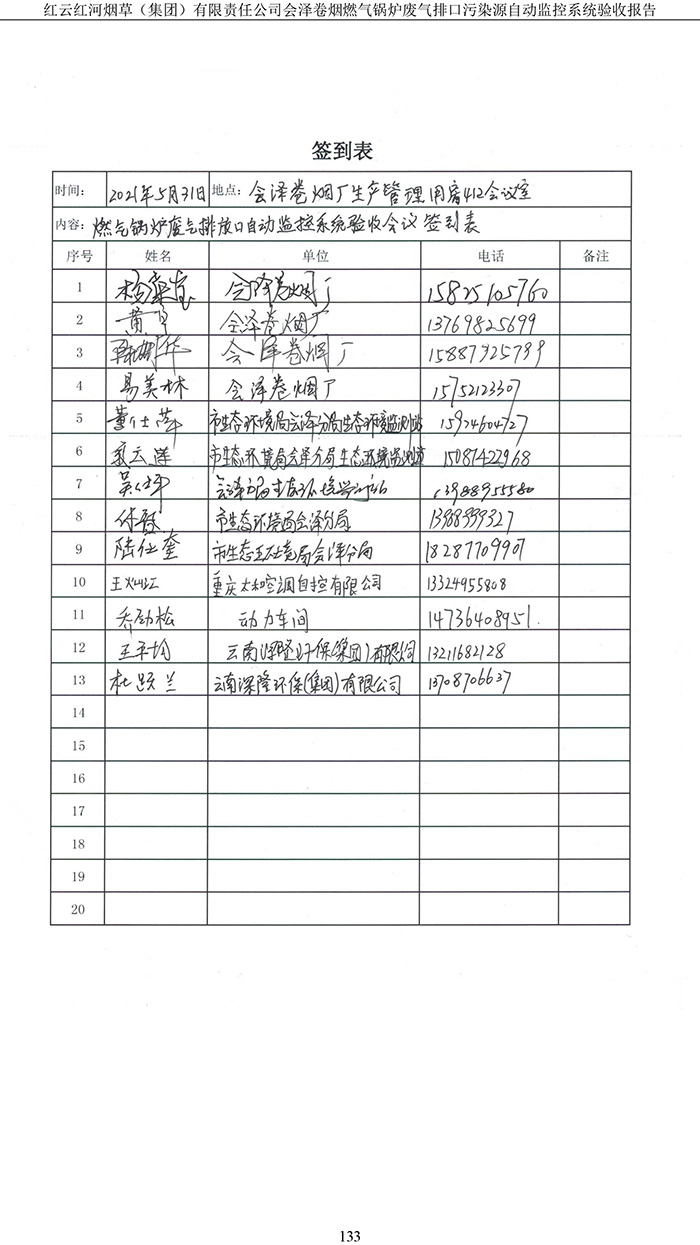 红云红河烟草（集团）有限责任公司会泽卷烟燃气锅炉废气排口污染源自动监控系统验收报告
签到表
时间： 2021年5月31日 地点： 会泽卷烟厂生产管理用房412会议室
内容： 燃气锅炉废气排放口自动监控系统验收会议签到表
序号 姓名 单位 电话 备注
1 会泽卷烟厂 15825105760
2 会泽卷烟厂 13769825699
3 会泽卷烟厂
4 易美林 会泽卷烟厂 15752123307
5 董仕萍 市生态环境局会泽分局生态环境监测站 15924604727
6 市生态环境局会泽分局生态环境监测站 15087422968
7 13988955580
8 市生态环境局会泽分局
9 陆仕奎 市生态环境局会泽分局 18287709907
10 重庆太和空调自控有限公司 13324955808
11 乔劲松 动力车间 14736408951
12 云南深隆环保(集团)有限公司 13211682128
13 云南深隆环保(集团)有限公司 13708706637
14
15
16
17
18
19
20
133